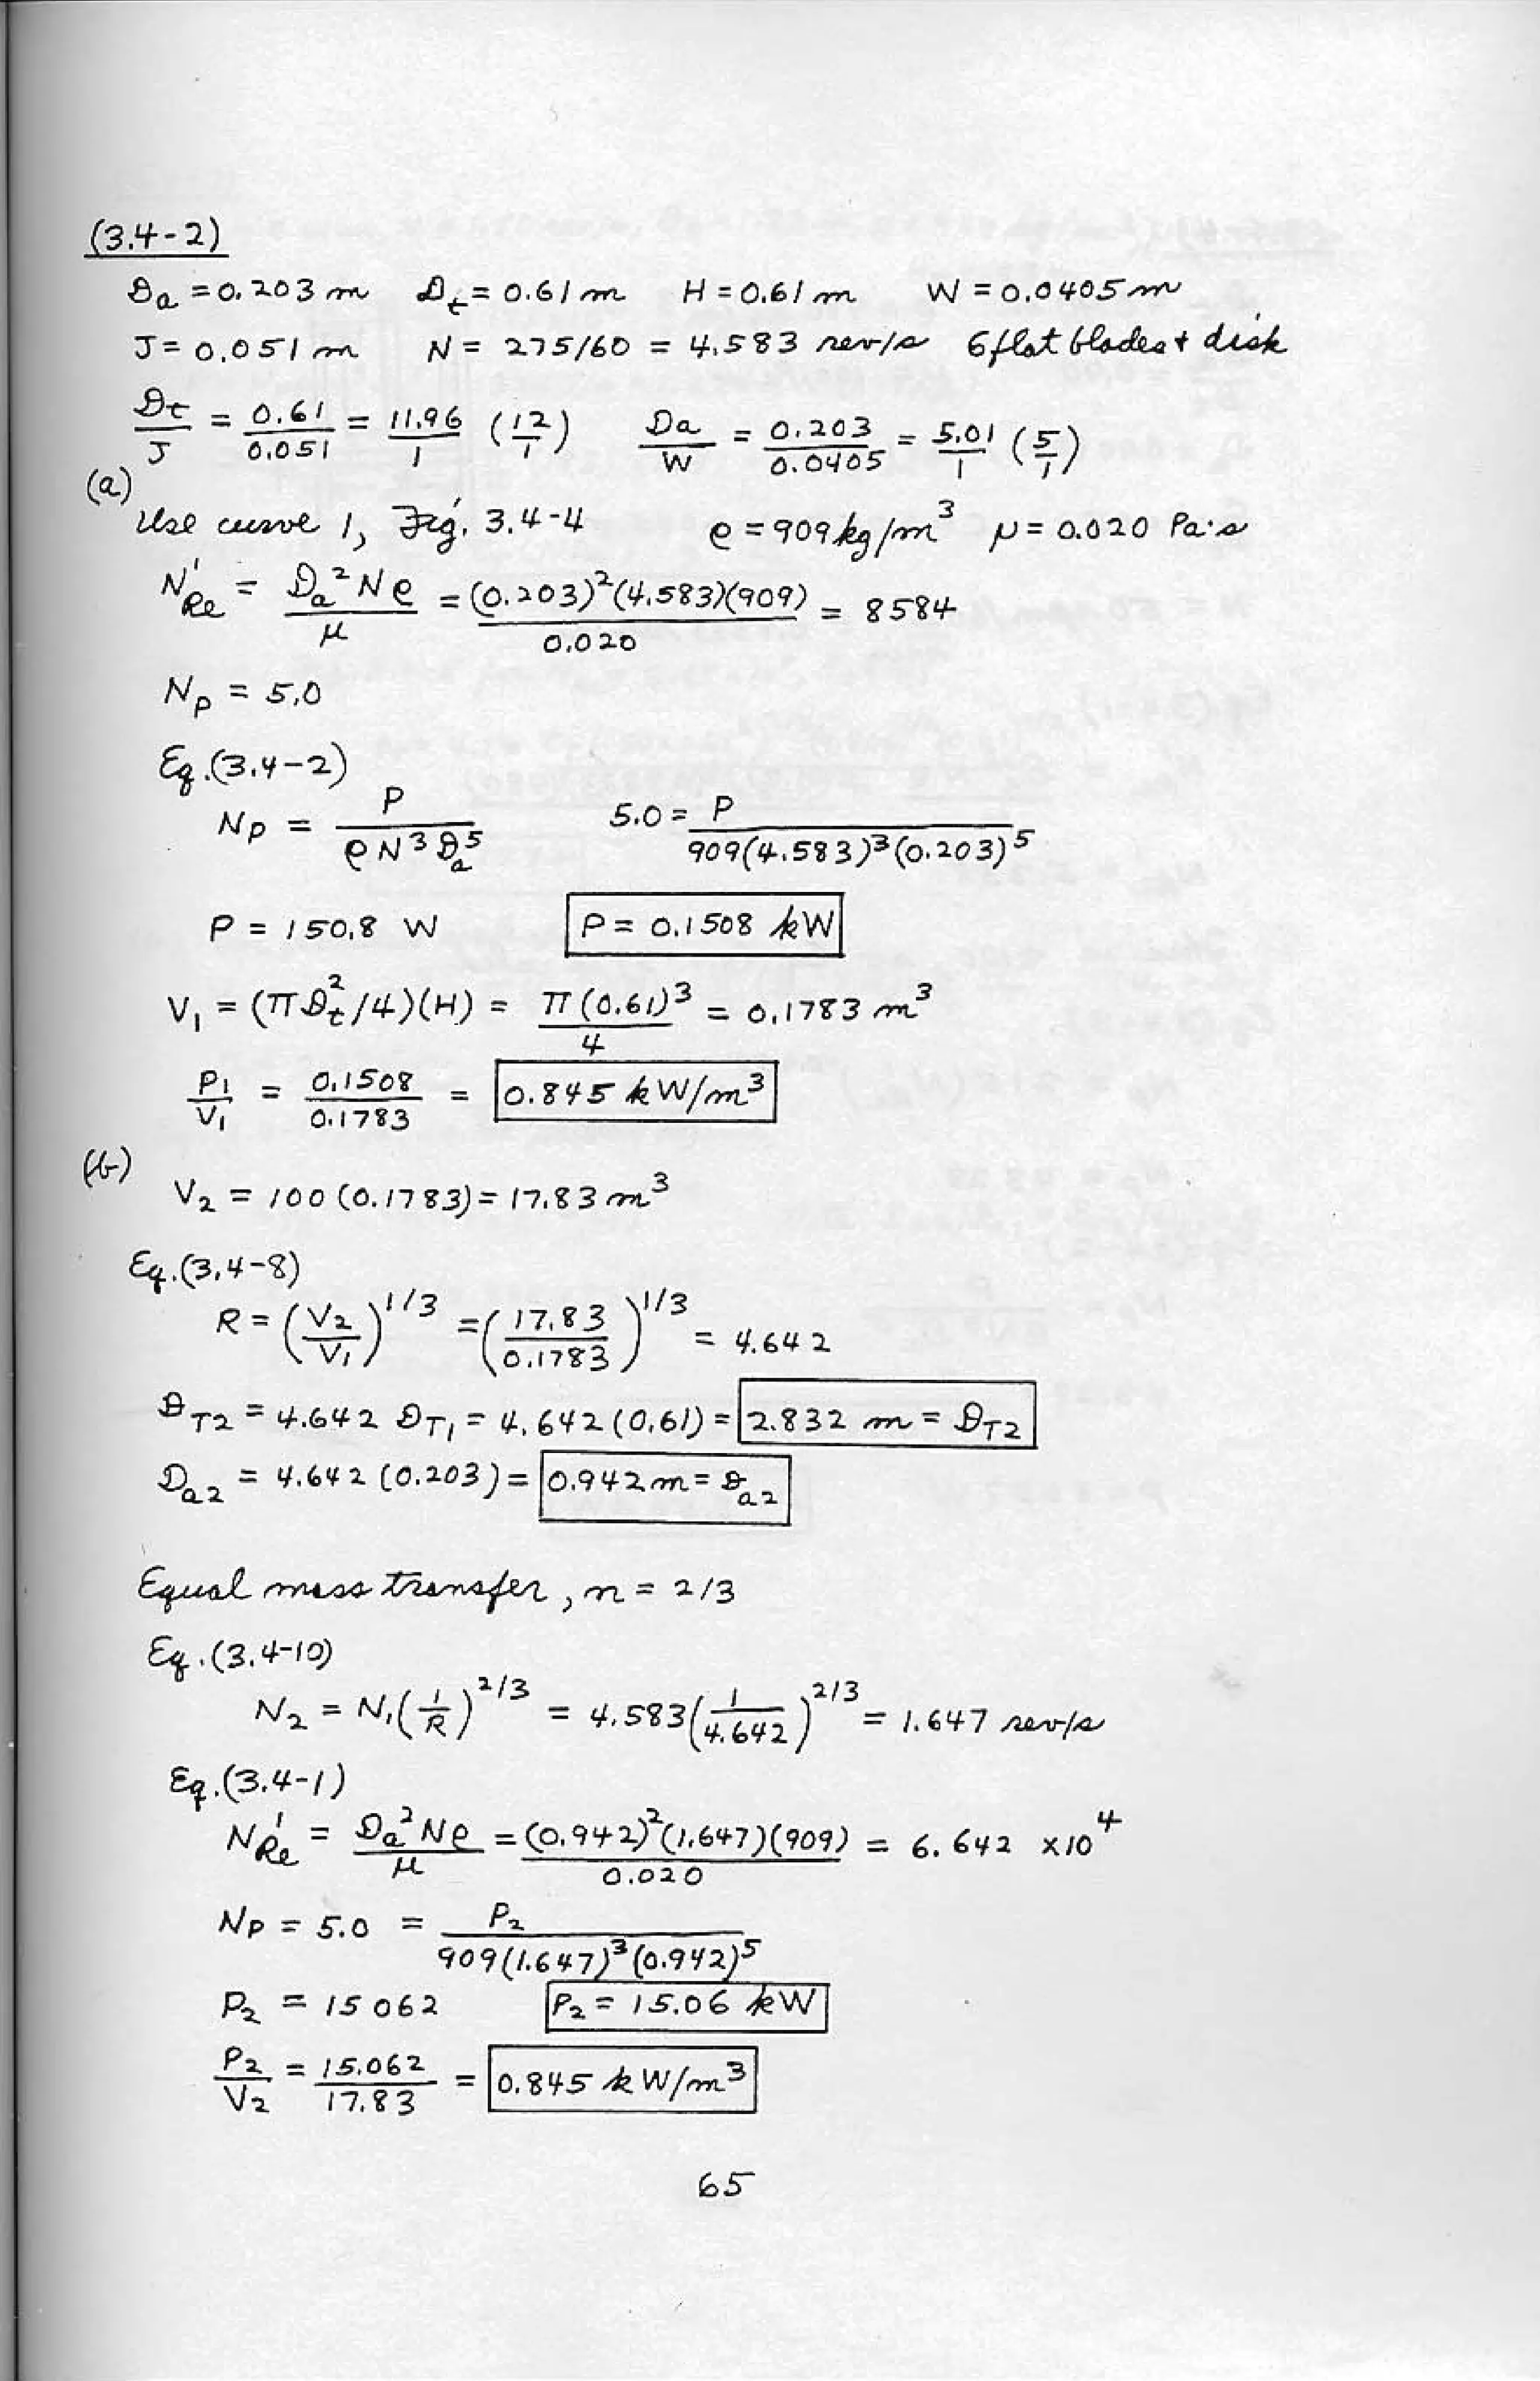 (3.4-2)
Da = 0.203 m Dt = 0.61 m H = 0.61 m W = 0.0405 m
J = 0.051 m N = 275/60 = 4.583 rev/s 6 flat blades + disk
Dt/J = 0.61/0.051 = 11.96/1 (12/1) Da/W = 0.203/0.0405 = 5.01/1 (5/1)
(a)
Use curve 1, Fig. 3.4-4 ρ = 909 kg/m³ μ = 0.020 Pa·s
N'Re = Da²Nρ/μ = (0.203)²(4.583)(909)/0.020 = 8584
Np = 5.0
Eq.(3.4-2)
Np = P/ρN³Da⁵ 5.0 = P/909(4.583)³(0.203)⁵
P = 150.8 W P = 0.1508 kW
V₁ = (πDt²/4)(H) = π(0.61)³/4 = 0.1783 m³
P₁/V₁ = 0.1508/0.1783 = 0.845 kW/m³
(b)
V₂ = 100(0.1783) = 17.83 m³
Eq.(3.4-8)
R = (V₂/V₁)^1/3 = (17.83/0.1783)^1/3 = 4.642
DT2 = 4.642 DT1 = 4.642(0.61) = 2.832 m = DT2
Da2 = 4.642(0.203) = 0.942 m = Da2
Equal mass transfer, n = 2/3
Eq.(3.4-10)
N₂ = N₁(1/R)^2/3 = 4.583(1/4.642)^2/3 = 1.647 rev/s
Eq.(3.4-1)
N'Re = Da²Nρ/μ = (0.942)²(1.647)(909)/0.020 = 6.642 x10⁴
Np = 5.0 = P₂/909(1.647)³(0.942)⁵
P₂ = 15062 P₂ = 15.06 kW
P₂/V₂ = 15.062/17.83 = 0.845 kW/m³
65